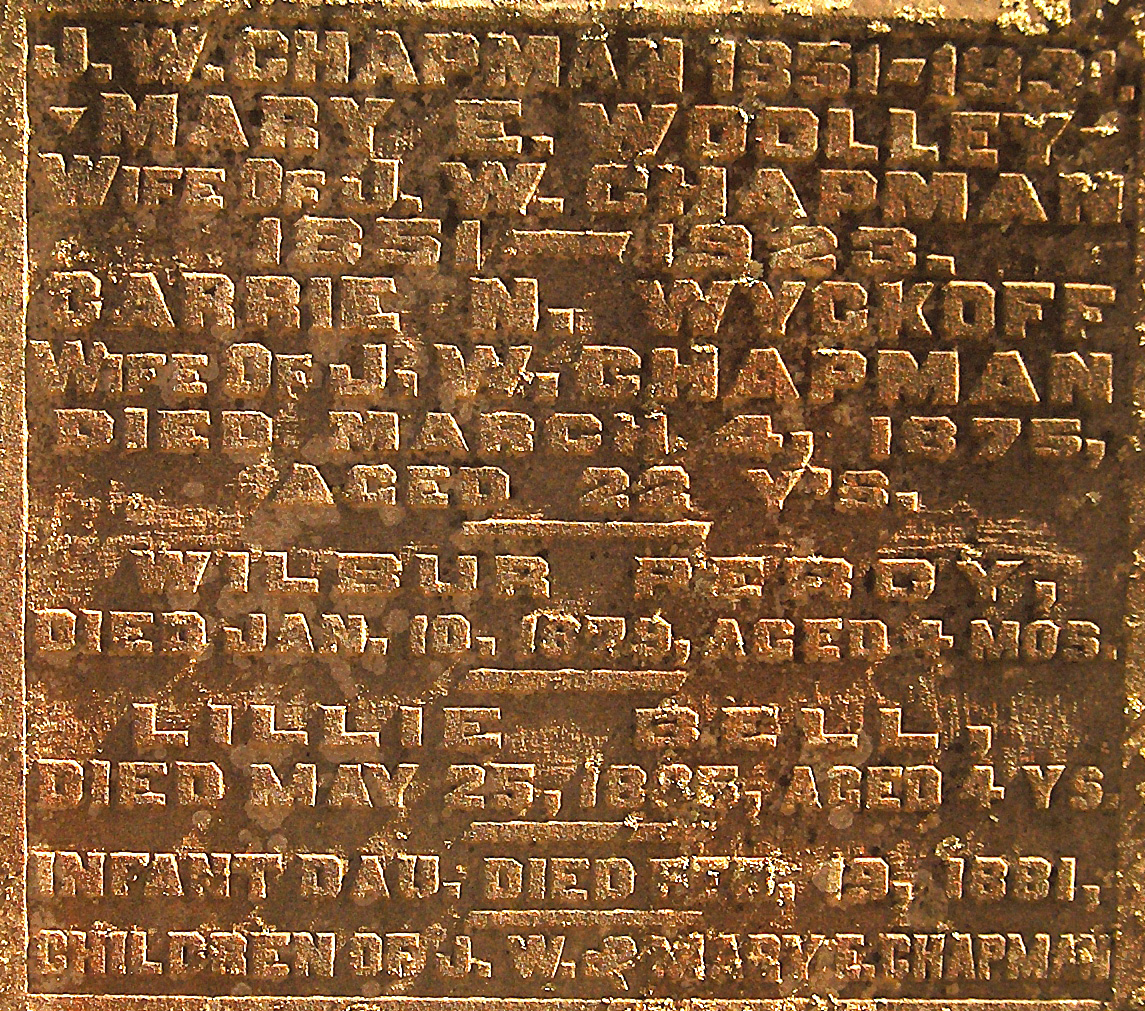 J. W. CHAPMAN 1851-1931.
-MARY E. WOOLLEY-
WIFE OF J. W. CHAPMAN
1851 — 1923.
CARRIE N. WYCKOFF
WIFE OF J. W. CHAPMAN
DIED MARCH 4, 1875,
AGED 22 Y'S.
WILBUR PERCY,
DIED JAN. 10, 1879, AGED 4 MOS.
LILLIE BELL,
DIED MAY 25, 1885, AGED 4 YS.
INFANT DAU. DIED FEB. 19, 1881,
CHILDREN OF J. W. & MARY E. CHAPMAN